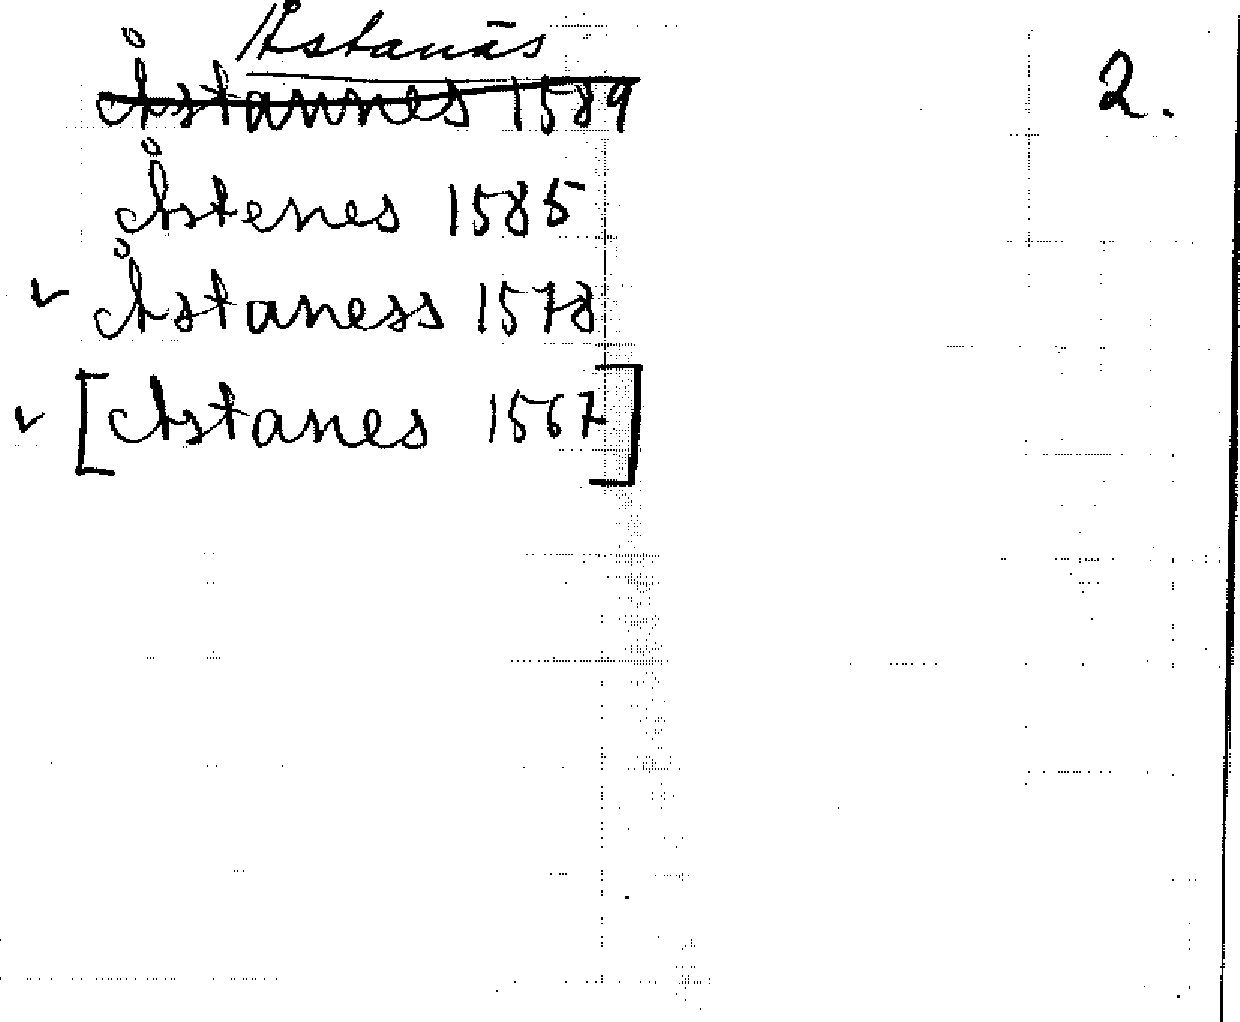 Åstanäs
2.
Åstannes 1589
Åstenes 1585
✓ Åstaness 1578
✓ [Astanes 1567]